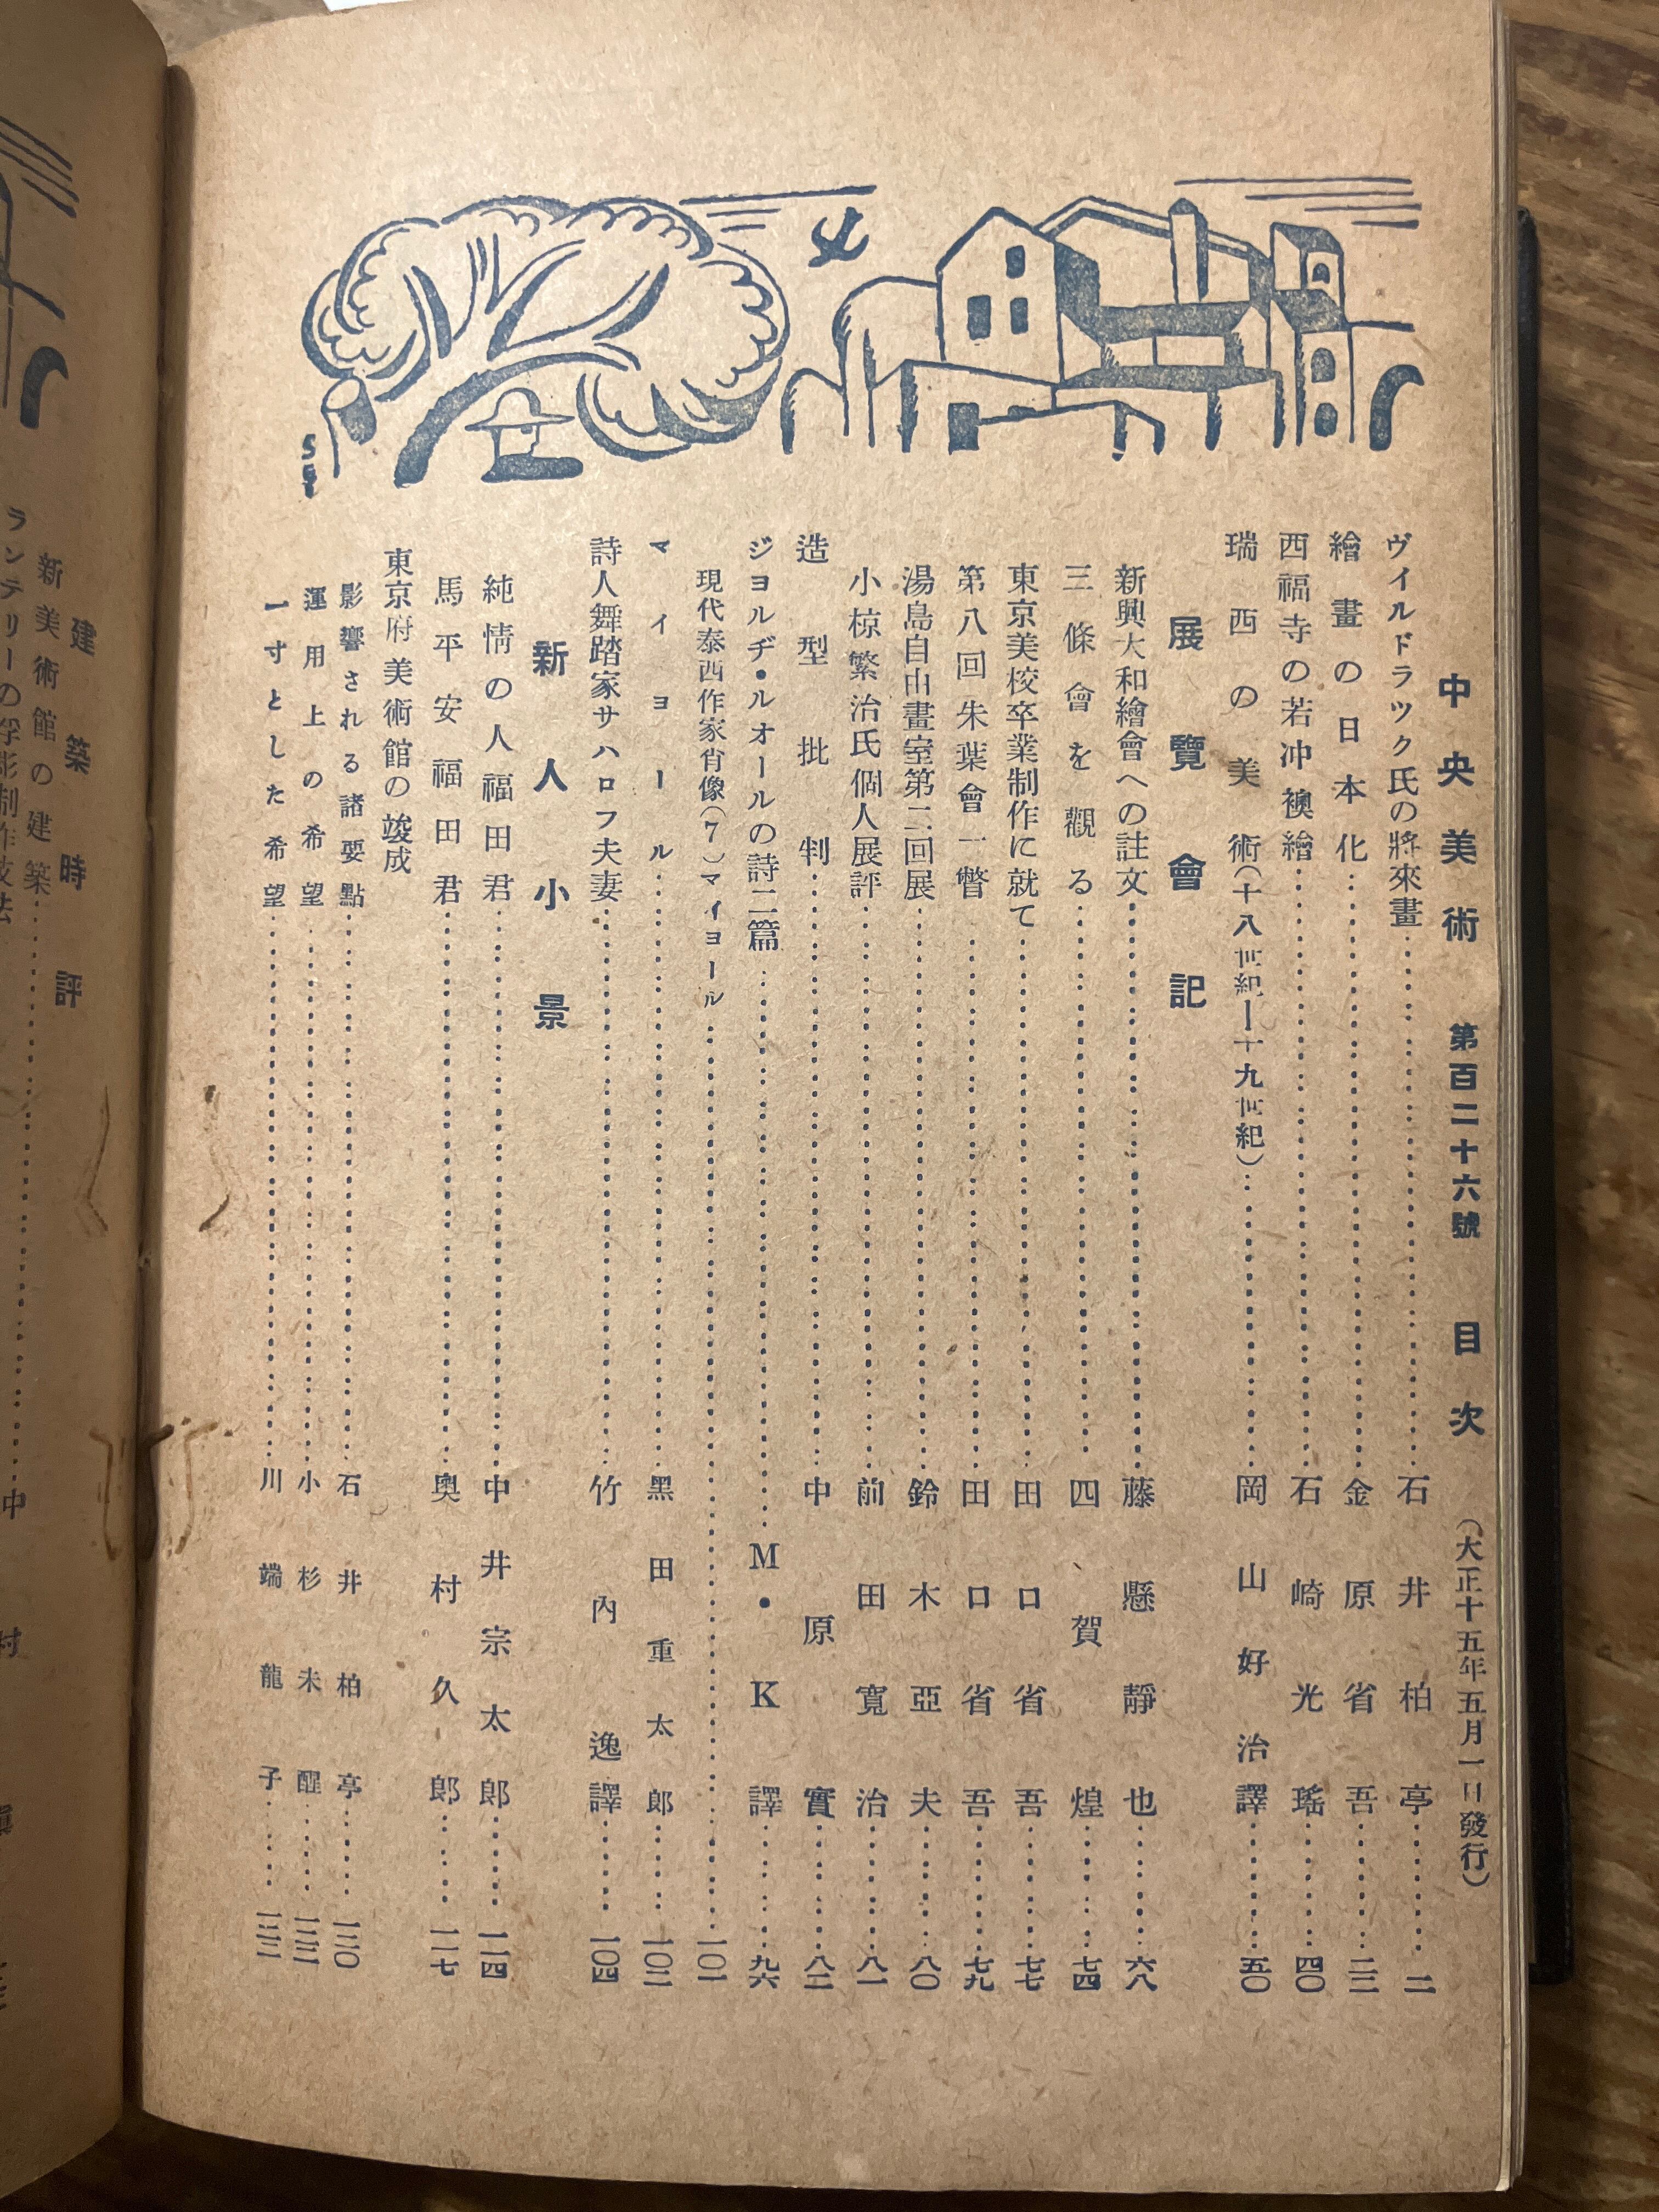 中央美術 第百二十六號 目次 (大正十五年五月一日發行)
ヴイルドラツク氏の將來畫……石井柏亭……二
繪畫の日本化……金原省吾……二二
西福寺の若冲襖繪……石崎光瑤……四〇
瑞西の美術(十八世紀—十九世紀)……岡山好治譯……五〇
展覽會記
新興大和繪會への註文……藤懸靜也……六八
三條會を觀る……四賀煌……七四
東京美校卒業制作に就て……田口省吾……七七
第八回朱葉會一瞥……田口省吾……七九
湯島自由畫室第二回展……鈴木亞夫……八〇
小椋繁治氏個人展評……前田寬治……八一
造型批判……中原實……八二
ジヨルヂ・ルオールの詩二篇……M・K譯……九六
現代泰西作家肖像(7)マイヨール……一〇一
マイヨール……黑田重太郎……一〇二
詩人舞踏家サハロフ夫妻……竹內逸譯……一〇四
新人小景
純情の人福田君……中井宗太郎……一一四
馬平安福田君……奧村久郎……一一七
東京府美術館の竣成
影響される諸要點……石井柏亭……一二〇
運用上の希望……小杉未醒……一二二
一寸とした希望……川端龍子……一二二
建築時評
新美術館の建築……中村
ランテリーの浮彫制作技法